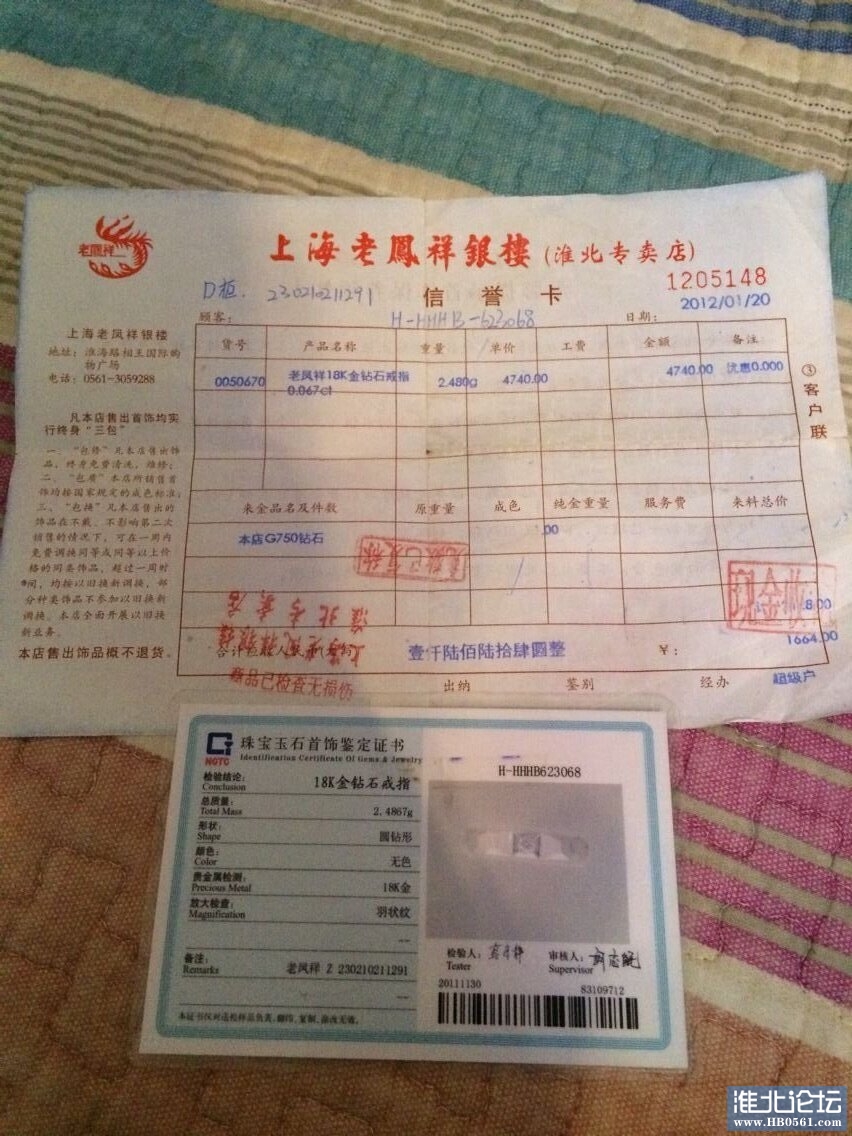 老鳳祥
上海老鳳祥銀樓(淮北专卖店)
1205148
D柜. 230210211291
信誉卡
2012/01/20
顾客:
H-HHHB-623068
日期:
上海老凤祥银楼
地址: 淮海路相王国际购
物广场
电话: 0561-3059288
凡本店售出首饰均实
行终身“三包”
一、“包修”凡本店售出饰
品, 终身免费清洗, 维修;
二、“包质”本店所销售首
饰均按国家规定的成色标准;
三、“包换”凡本店售出的
饰品在不戴、不影响第二次
销售的情况下, 可在一周内
免费调换同等或同等以上价
格的同类饰品, 超过一周时
间, 均按以旧换新调换, 部
分种类饰品不参加以旧换新
调换。本店全面开展以旧换
新业务。
本店售出饰品概不退货。
货号 产品名称 重量 单价 工费 金额 备注
0050670 老凤祥18K金钻石戒指 2.480g 4740.00 4740.00 优惠0.000
0.067ct
③客户联
来金品名及件数 原重量 成色 纯金重量 服务费 来料总价
本店G750钻石 .00
现金收
8.00
壹仟陆佰陆拾肆圆整 ¥: 1664.00
商品已检查无损伤
出纳 鉴别 经办 超级户
NGTC
珠宝玉石首饰鉴定证书
Identification Certificate Of Gems & Jewelry
检验结论: 18K金钻石戒指
Conclusion
总质量: 2.4867g
Total Mass
形状: 圆钻形
Shape
颜色: 无色
Color
贵金属检测: 18K金
Precious Metal
放大检查: 羽状纹
Magnification
备注: 老凤祥 Z 230210211291
Remarks
本证书仅对送检样品负责, 翻印、复制、涂改无效。
H-HHHB623068
检验人:
Tester
审核人:
Supervisor
20111130 83109712
淮北论坛
www.HB0561.com